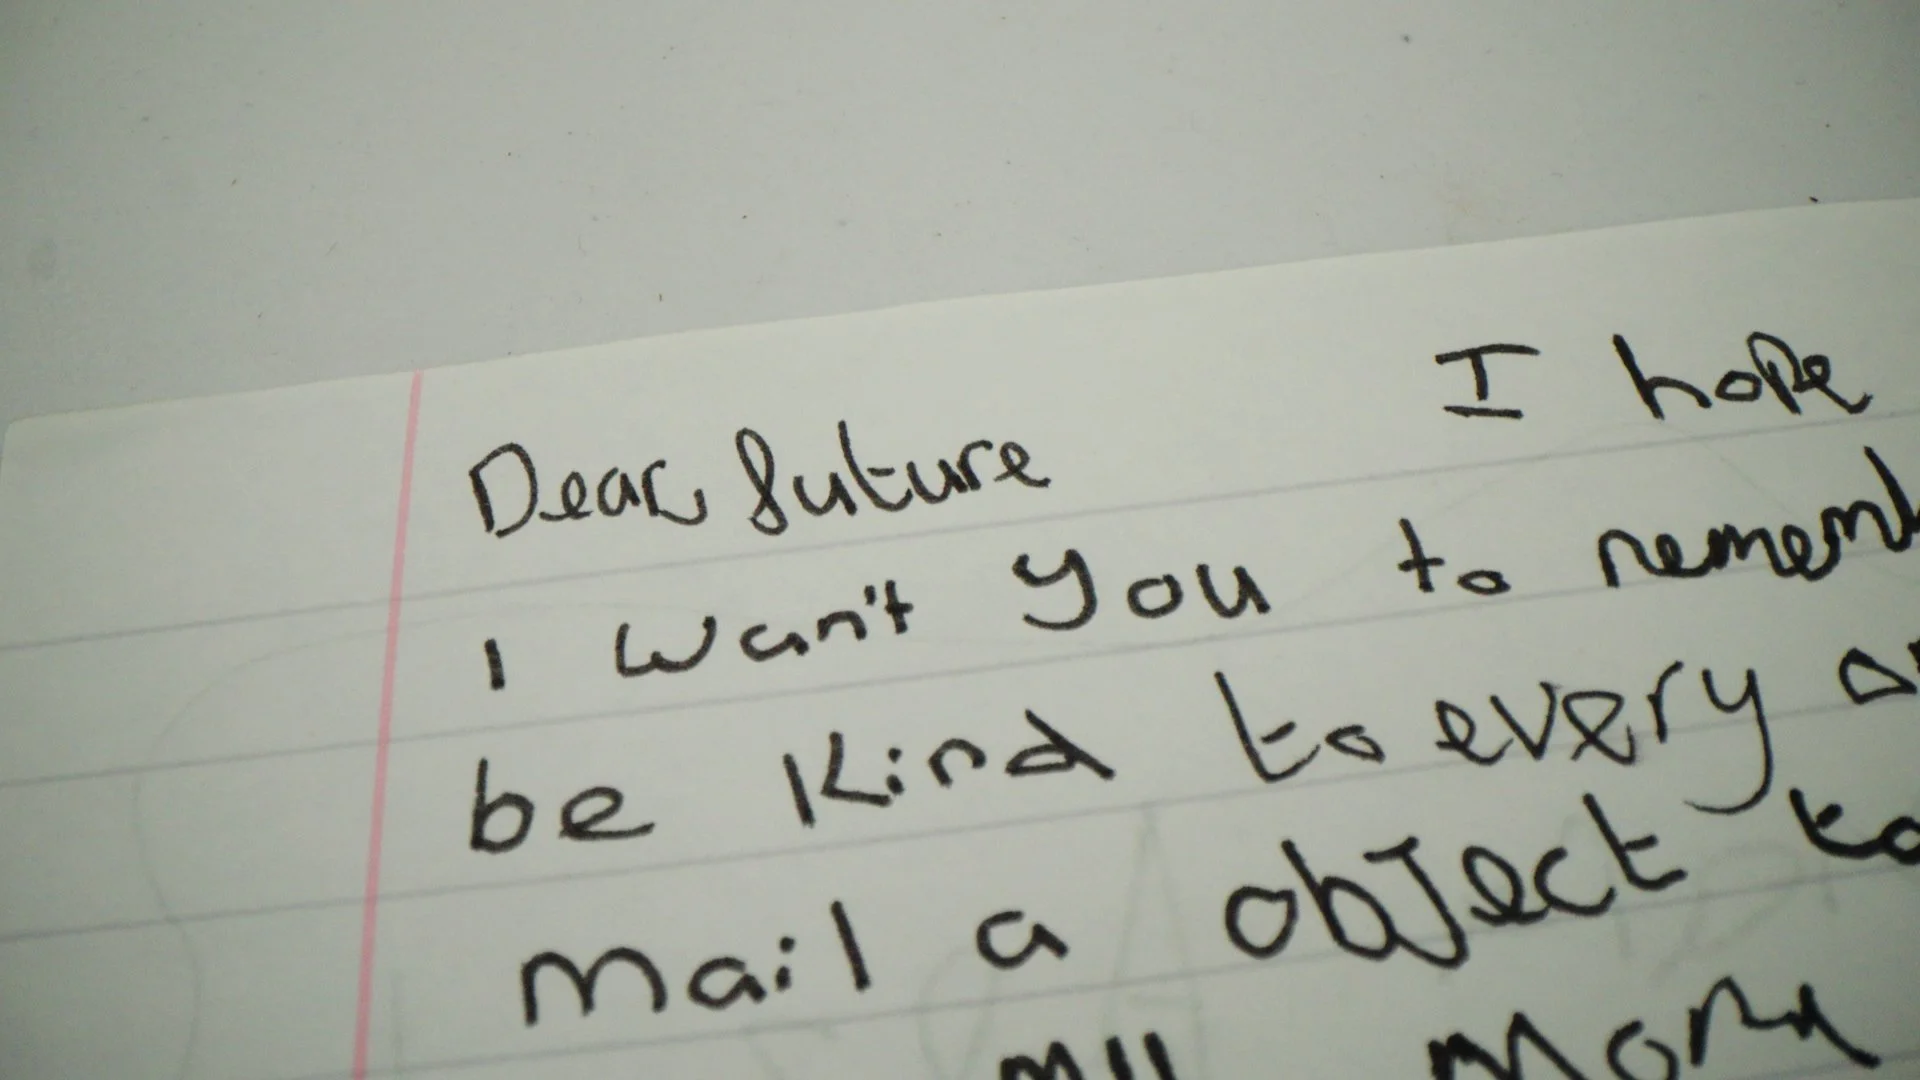 Dear future I hope
I wan't you to rememb
be kind to every o
mail a object to